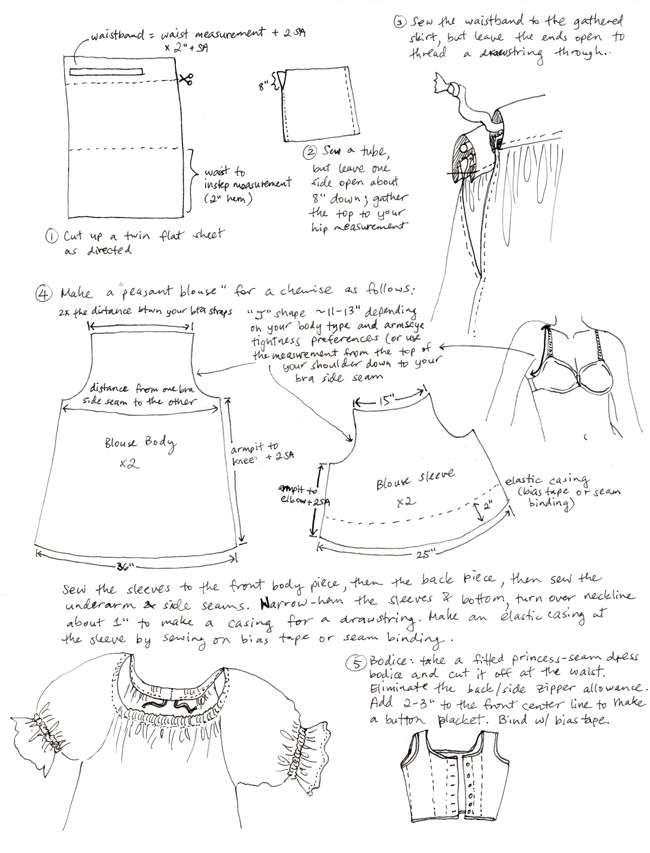 waistband = waist measurement + 2SA
x 2" + SA
8"
waist to
instep measurement
(2" hem)
① Cut up a twin flat sheet
as directed
② Sew a tube,
but leave one
side open about
8" down; gather
the top to your
hip measurement
③ Sew the waistband to the gathered
skirt, but leave the ends open to
thread a drawstring through..
④ Make a "peasant blouse" for a chemise as follows:
2x the distance btwn your bra straps
"J" shape ~11-13" depending
on your body type and armscye
tightness preferences (or use
the measurement from the top of
your shoulder down to your
bra side seam
distance from one bra
side seam to the other
Blouse Body
x2
armpit to
knee + 2SA
36"
15"
Blouse sleeve
x2
armpit to
elbow + 2SA
2"
25"
elastic casing
(bias tape or seam
binding)
Sew the sleeves to the front body piece, then the back piece, then sew the
underarm & side seams. Narrow-hem the sleeves & bottom, turn over neckline
about 1" to make a casing for a drawstring. Make an elastic casing at
the sleeve by sewing on bias tape or seam binding.
⑤ Bodice: take a fitted princess-seam dress
bodice and cut it off at the waist.
Eliminate the back/side zipper allowance.
Add 2-3" to the front center line to make
a button placket. Bind w/ bias tape.